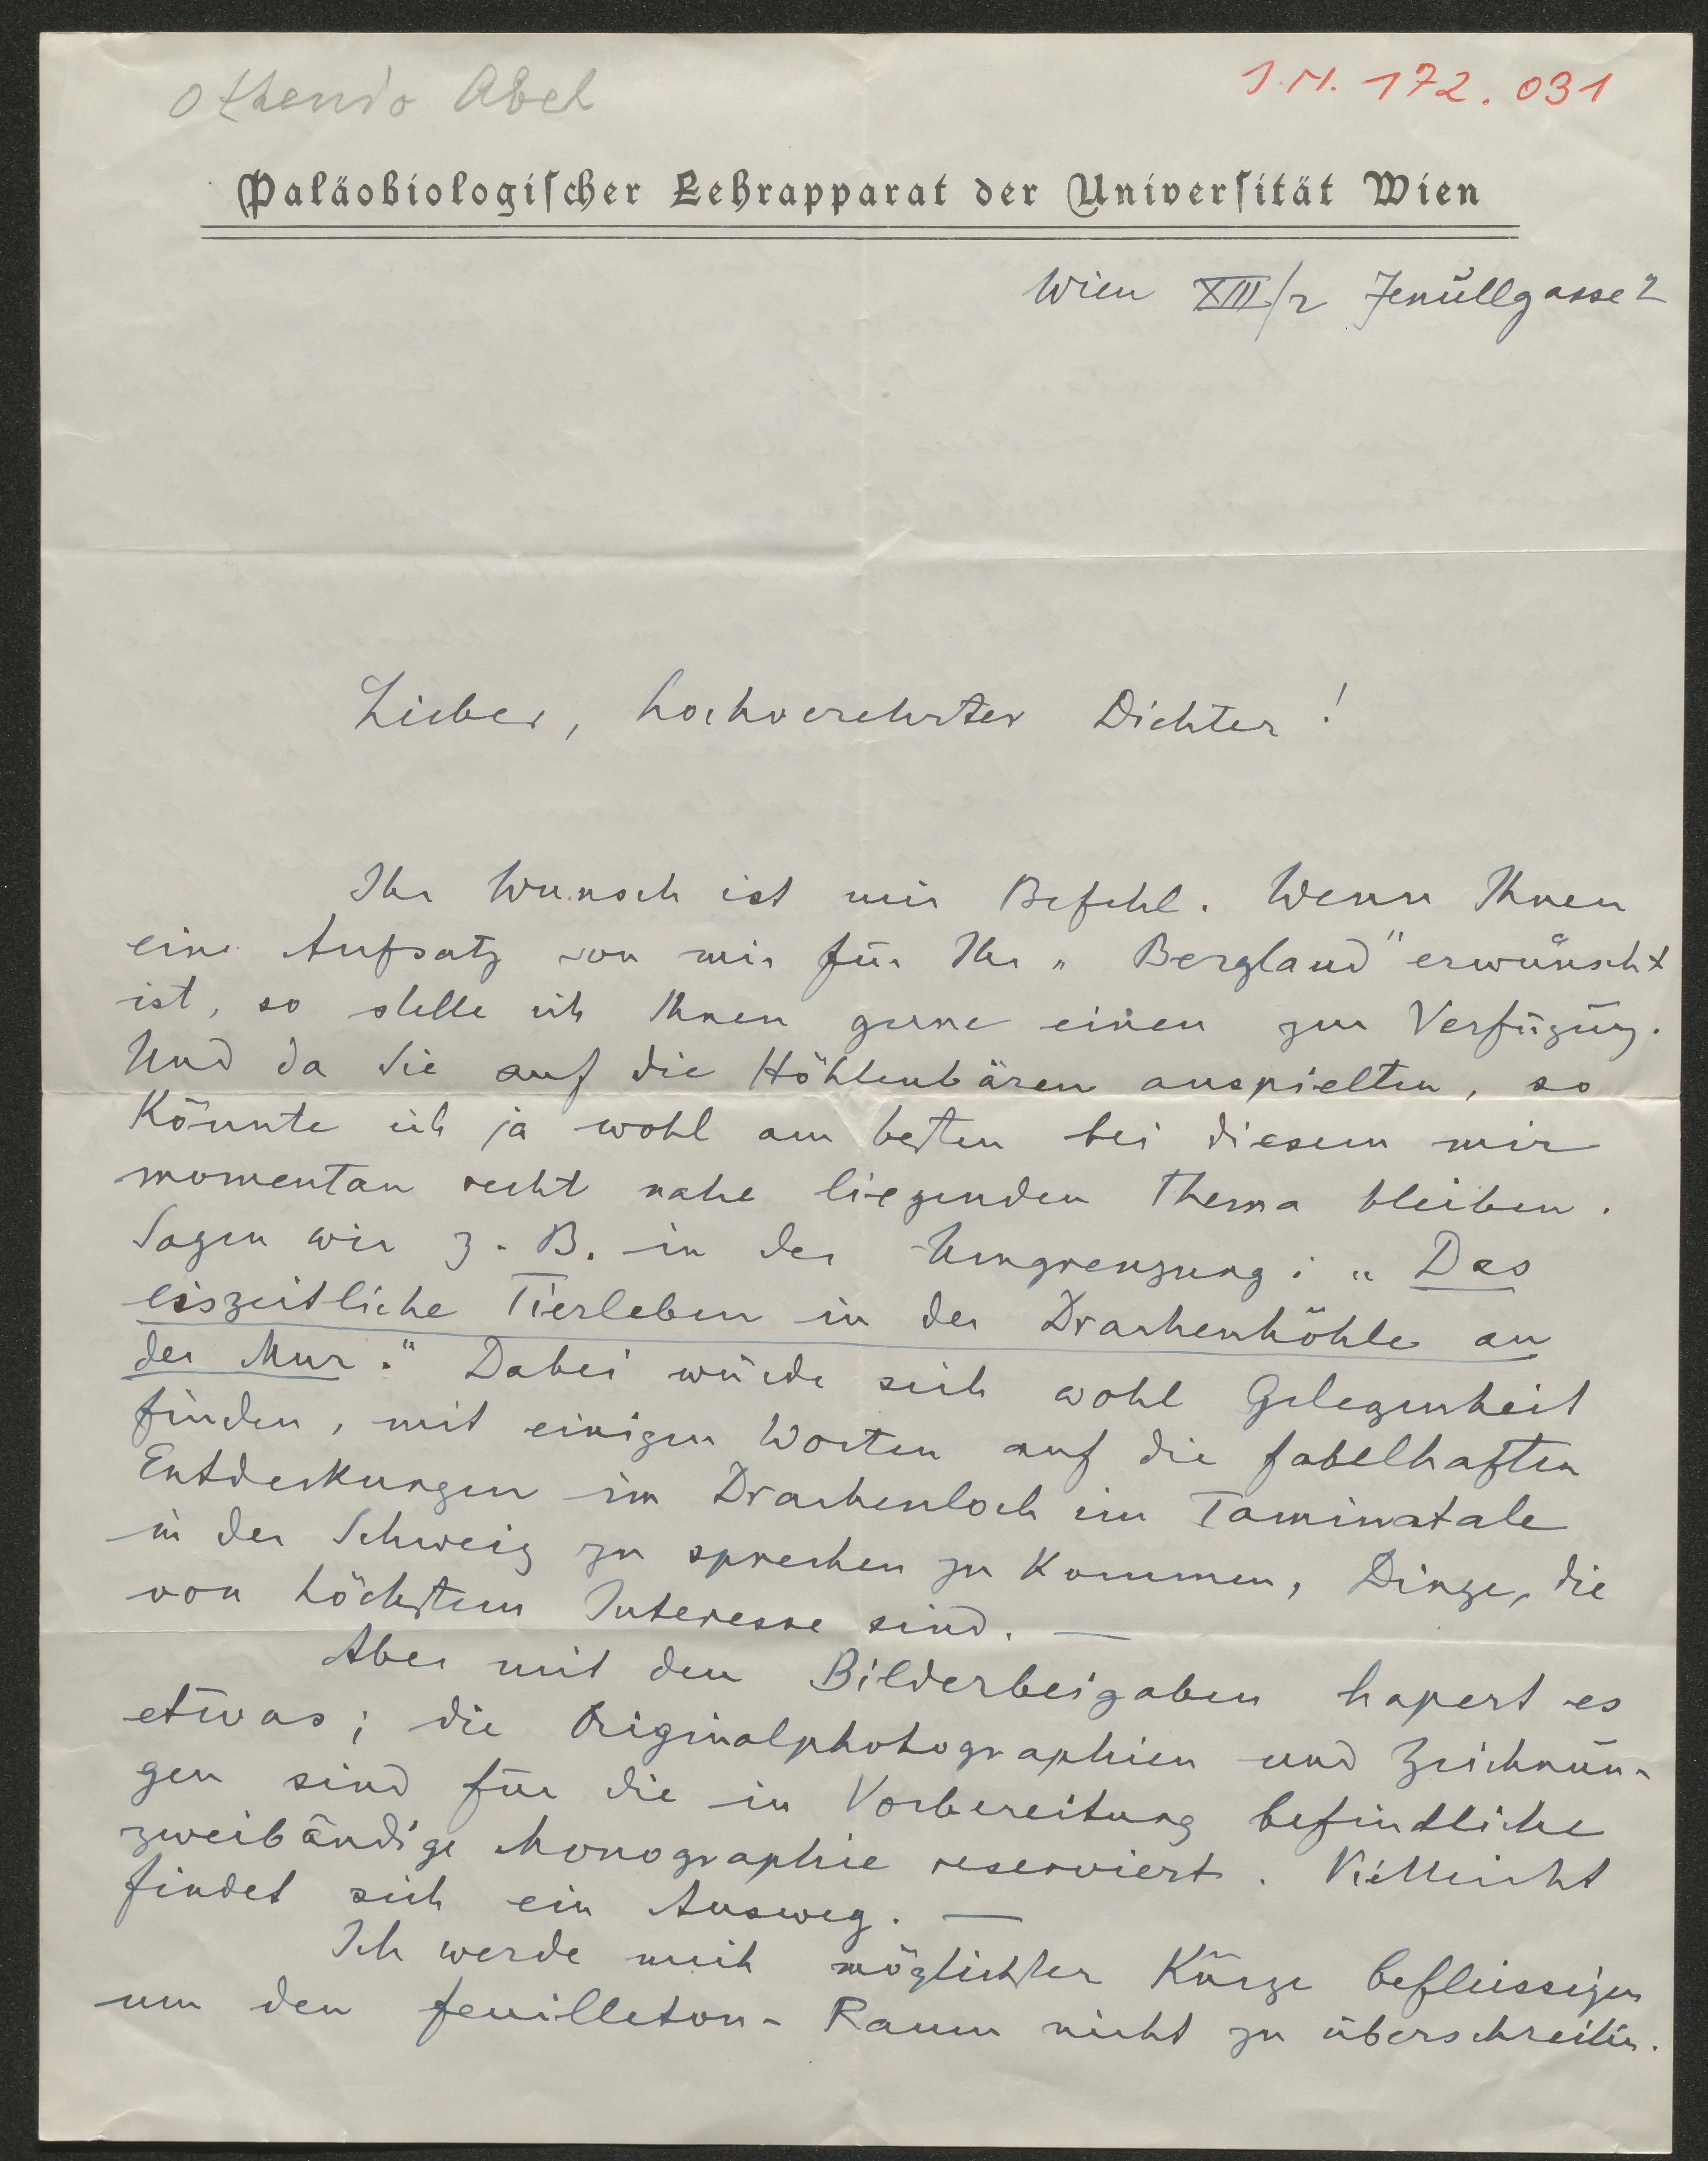 Othenio Abel
J.N. 172.031
Paläobiologischer Lehrapparat der Universität Wien
Wien XIII/2 Jenullgasse 2
Lieber, hochverehrter Dichter!
Ihr Wunsch ist mir Befehl. Wenn Ihnen
ein Aufsatz von mir für Ihr „Bergland" erwünscht
ist, so stelle ich Ihnen gerne einen zur Verfügung.
Und da Sie auf die Höhlenbären anspielten, so
könnte ich ja wohl am besten bei diesem mir
momentan recht nahe liegenden Thema bleiben.
Sagen wir z. B. in der Umgrenzung: „Das
eiszeitliche Tierleben in der Drachenhöhle an
der Mur." Dabei würde sich wohl Gelegenheit
finden, mit einigen Worten auf die fabelhaften
Entdeckungen im Drachenloch im Taminatale
in der Schweiz zu sprechen zu kommen, Dinge, die
von höchstem Interesse sind. —
Aber mit den Bilderbeigaben hapert es
etwas; die Originalphotographien und Zeichnun-
gen sind für die in Vorbereitung befindliche
zweibändige Monographie reserviert. Vielleicht
findet sich ein Ausweg. —
Ich werde mich möglichster Kürze befleissigen
um den Feuilleton-Raum nicht zu überschreiten.